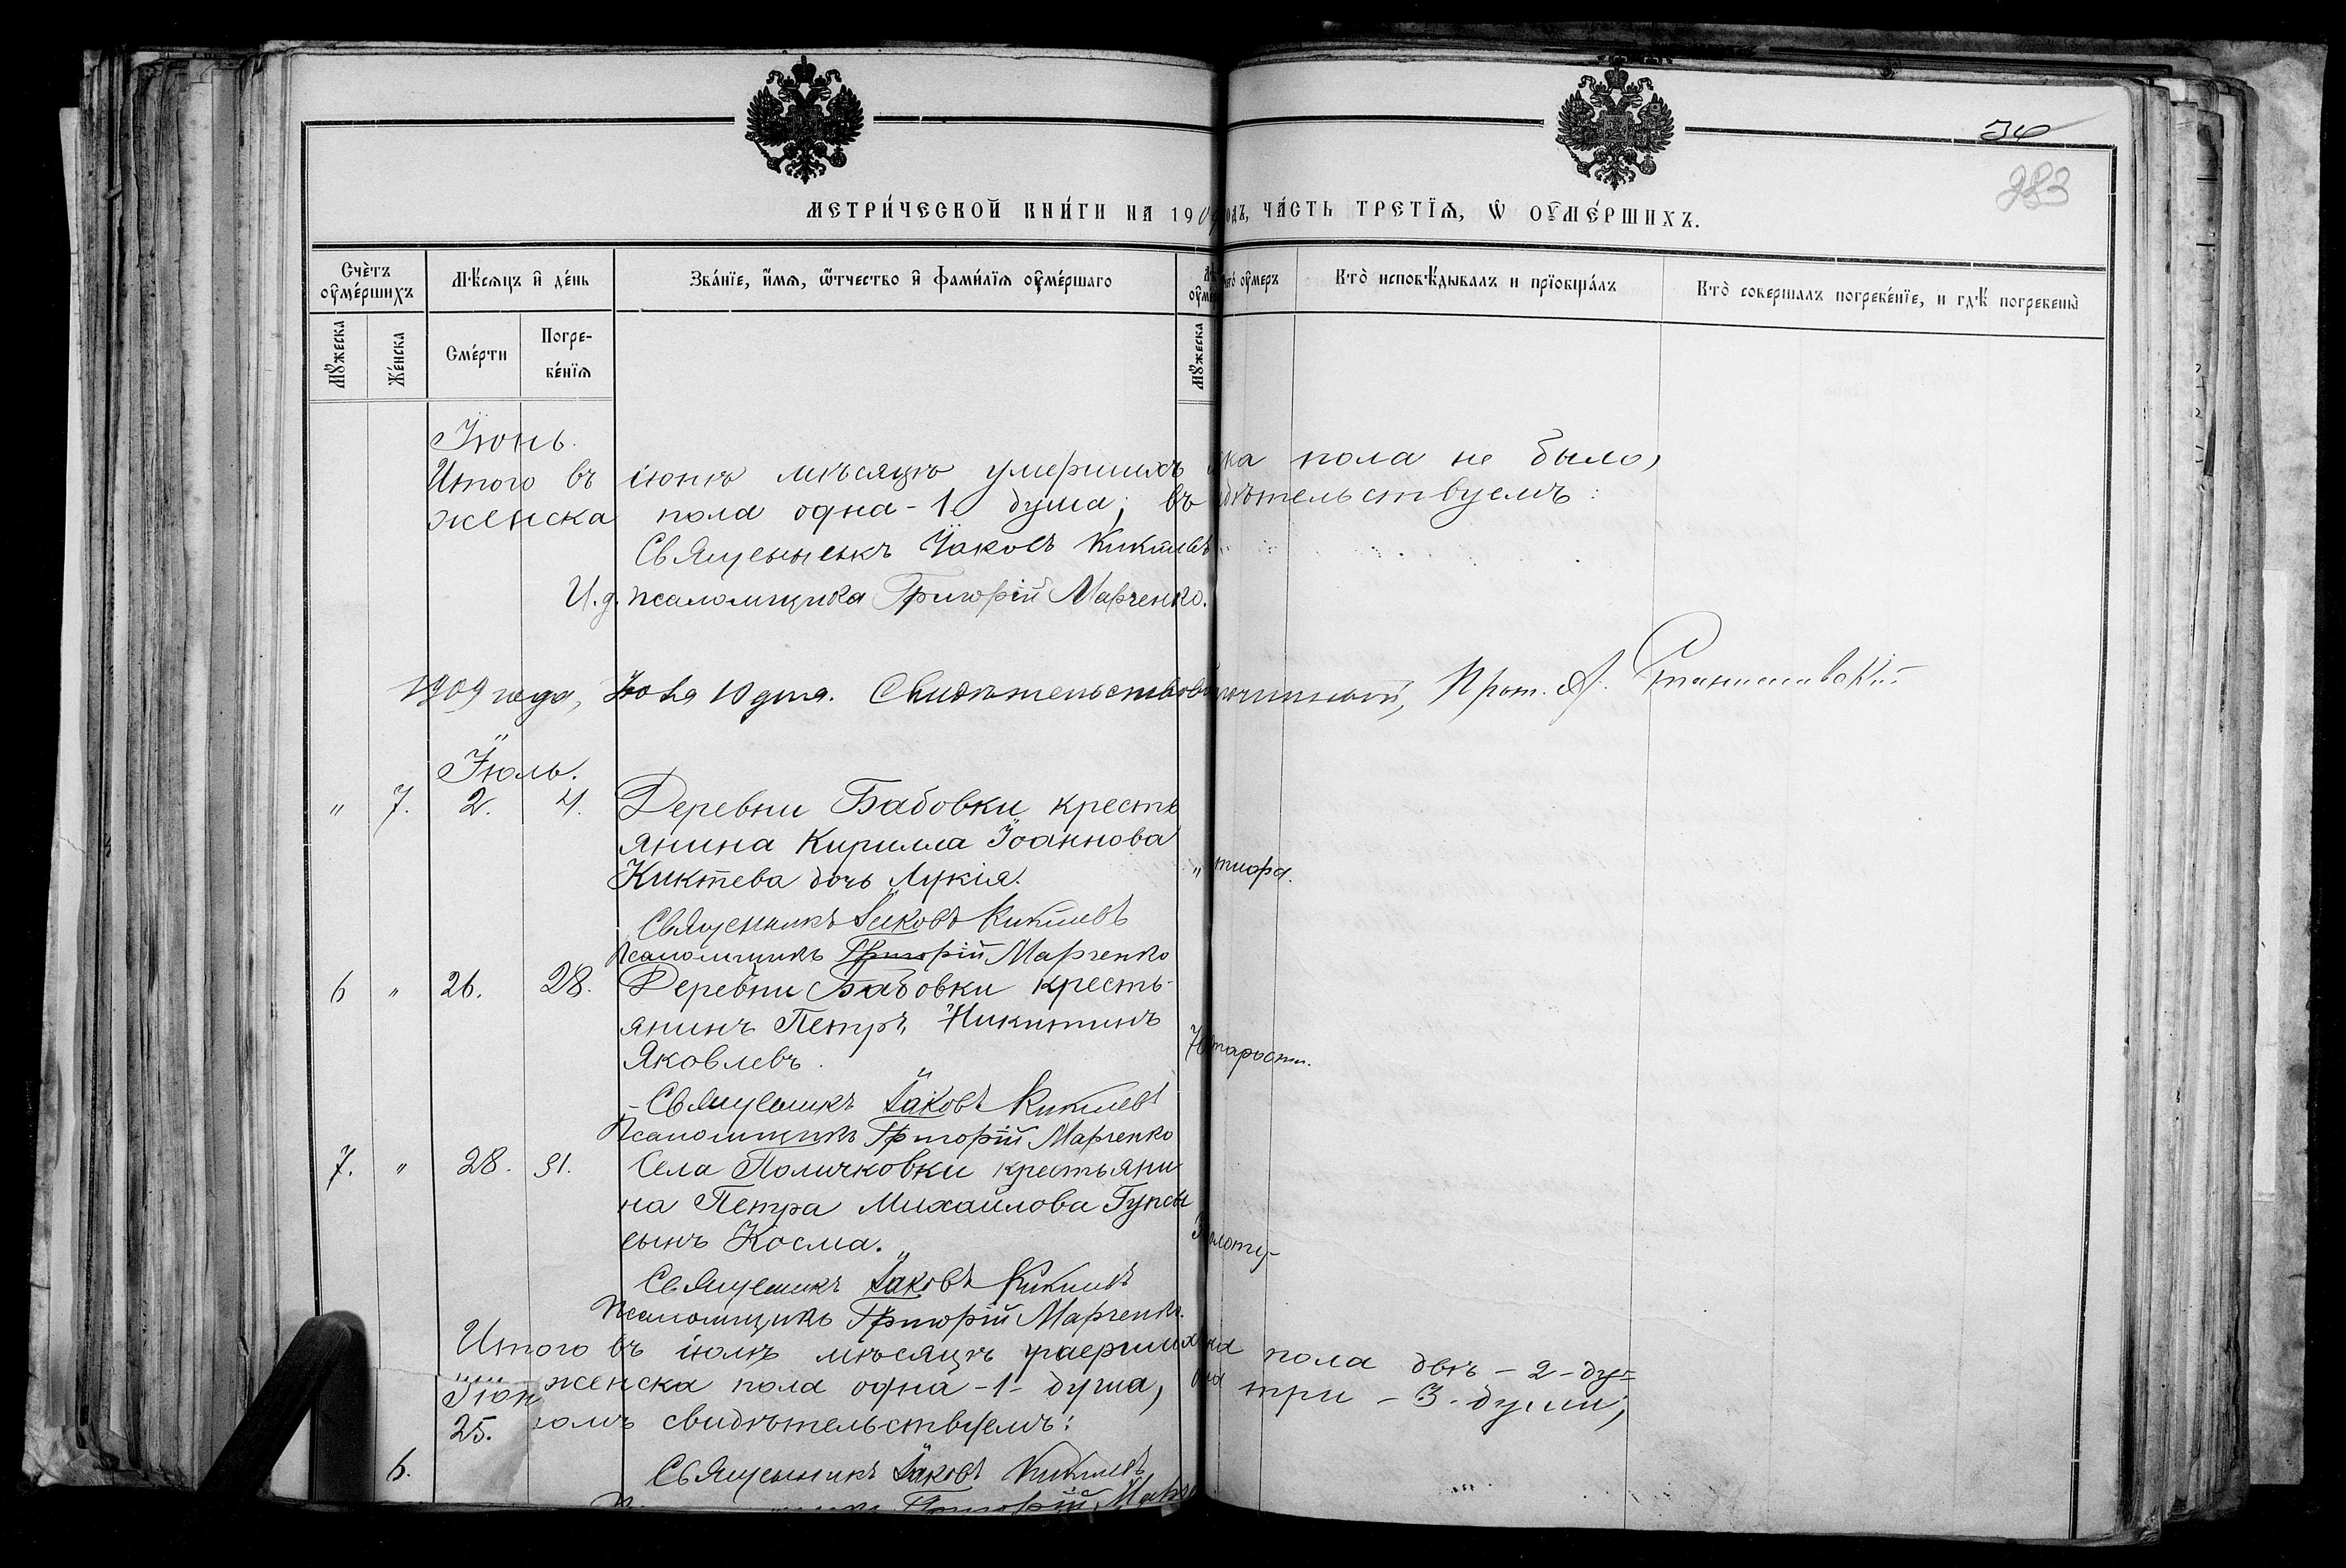 34
283
МЕТРИ́ЧЕСКОЙ КНИ́ГИ НА 190 одъ, ЧА́СТЬ ТРЕТІѦ, Ѡ҆ ОУ҆МЕ́РШИХЪ.
Счѐтъ оу҆ме́ршихъ
Мѣ́сѧцъ и҆ де́нь
Зва́нїе, и҆́мѧ, ѻ҆́тчество и҆ фами́лїѧ оу҆ме́ршаго
его̀ оу҆меръ
Кто̀ исповѣ́дывалъ и прїобща́лъ
Кто̀ совершалъ погребе́нїе, и гдѣ̀ погребены̀
Мꙋ́жеска
Же́нска
Сме́рти
Погре-
бе́нїѧ
Мꙋ́жеска
Іюнь.
Итого въ іюнѣ мѣсяцѣ умершихъ ска пола не было,
женска пола одна - 1 душа; въ дѣтельствуемъ:
Священникъ Іаковъ Киктевъ
И. д. псаломщика Григорій Марченко.
1909 года, 10 дня. Свидѣтельствов Прот. А.
Іюль.
" 7. 2. 4. Деревни Бабовки кресть
янина Кирилла Іоаннова
Киктева дочь Лукія. "
Священникъ Іаковъ Киктевъ
Псаломщикъ Григорій Марченко
6 " 26. 28. Деревни Бабовки кресть-
янинъ Петръ Никитинъ
Яковлевъ. 7 тарости.
Священникъ Іаковъ Киктевъ
Псаломщикъ Григорій Марченко
7. " 28. 31. Села Поличковки крестьяни
на Петра Михайлова
сынъ Косма. олоту-
Священникъ Іаковъ Киктевъ
Псаломщикъ Григорій Марченко.
Итого въ іюлѣ мѣсяцѣ умерших ка пола двѣ - 2 - ду=
женска пола одна - 1 - душа, три - 3 - души;
Іюн
25. омъ свидѣтельствуемъ:
6. Священникъ Іаковъ Киктевъ
Григорій Мар